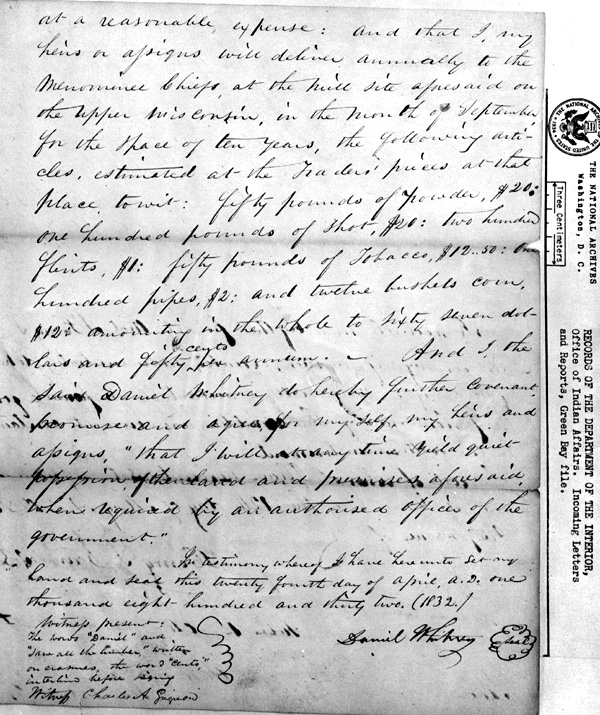 at a reasonable expense: and that I, my
heirs or assigns will deliver annually to the
Menominee Chiefs, at the mill site aforesaid on
the upper Wisconsin, in the month of September
for the space of ten years, the following arti-
cles, estimated at the Traders' prices at that
place, to wit: fifty pounds of Powder, $20:
one hundred pounds of Shot, $20: two hundred
flints, $1: fifty pounds of Tobacco, $12..50: one
hundred pipes, $2: and twelve bushels corn,
$12: amounting in the whole to sixty seven dol-
cents
lars and fifty per annum. And I, the
said Daniel Whitney do hereby further covenant
promise and agree for myself, my heirs and
assigns, "that I will at any time yield quiet
possession of the land and premises aforesaid,
when required by an authorised officer of the
government."
In testimony whereof I have hereunto set my
hand and seal this twenty fourth day of April, A.D. one
thousand eight hundred and thirty two. (1832.)
Witness present:
The words "Daniel" and
"saw all the timber," written
on erasures, the word "cents,"
interlined before signing
Witness Charles A. Grignon
Daniel Whitney
Seal
THE NATIONAL ARCHIVES
Washington, D. C.
Three Centimeters
RECORDS OF THE DEPARTMENT OF THE INTERIOR,
Office of Indian Affairs. Incoming Letters
and Reports, Green Bay file.